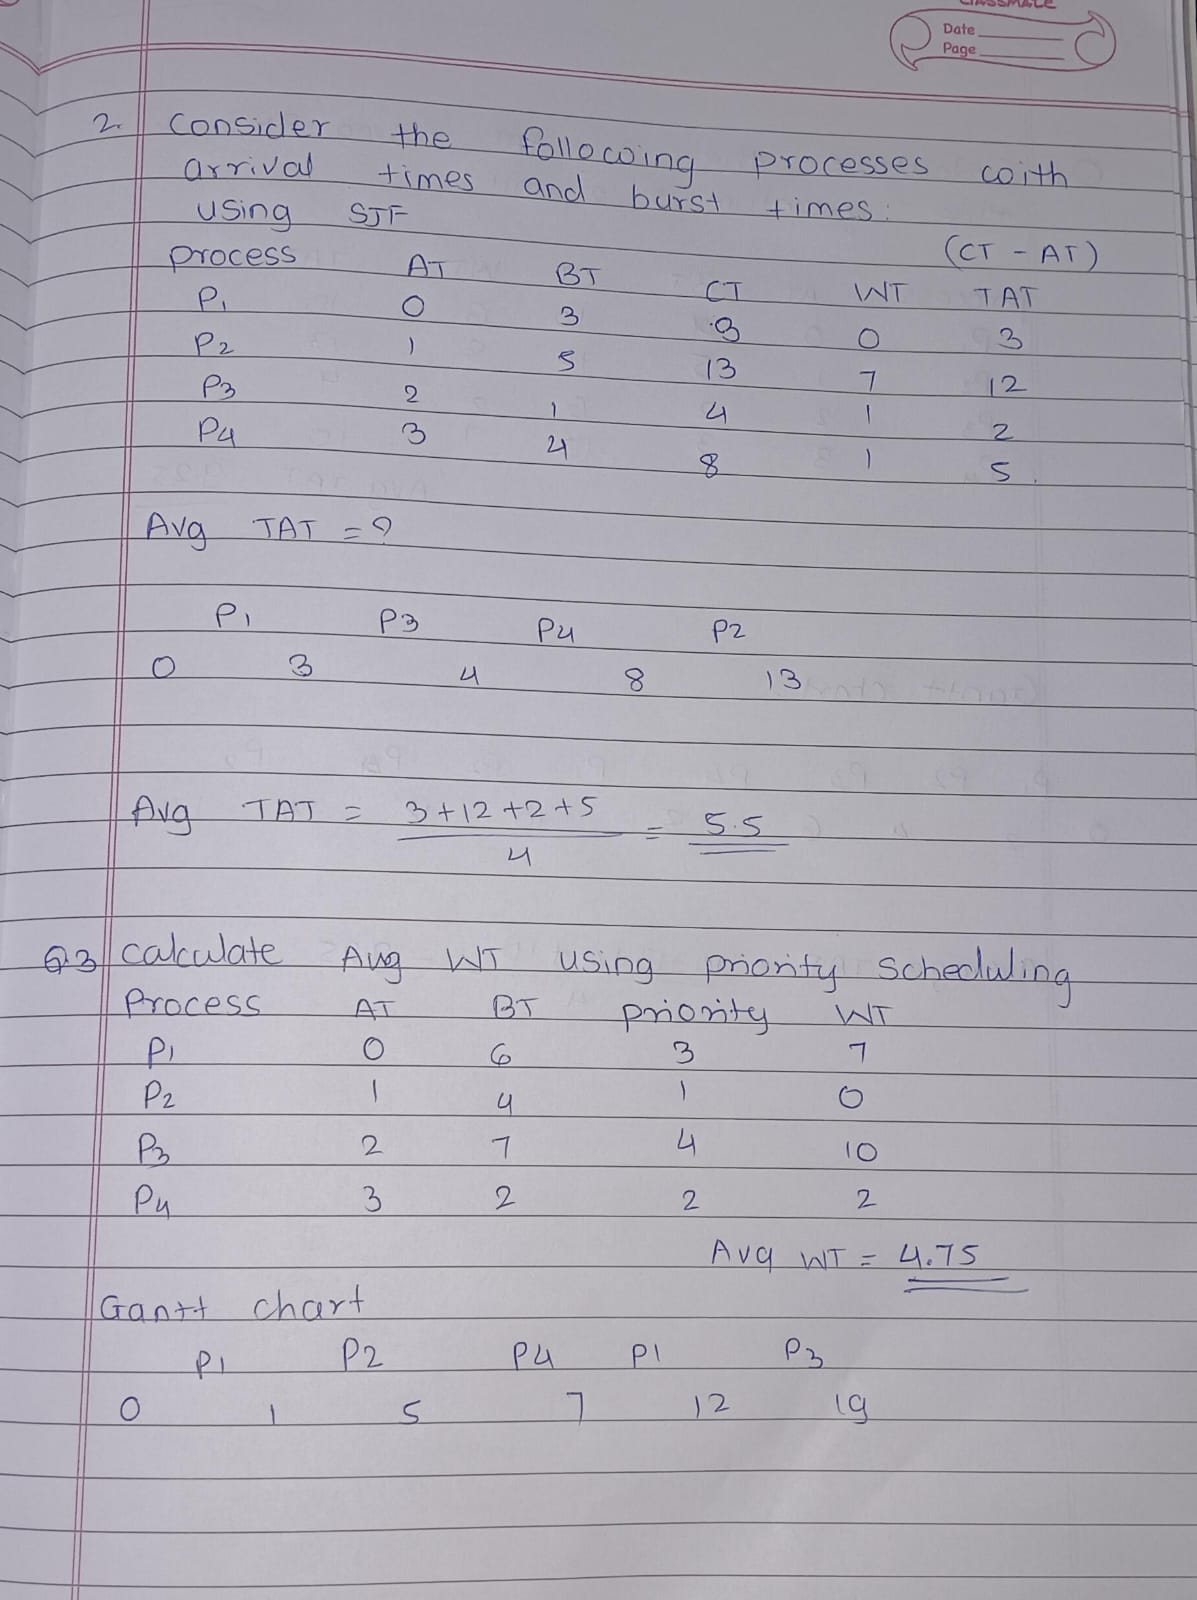 classmate
Date
Page
2. Consider the following processes with
arrival times and burst times.
using SJF
(CT - AT)
process AT BT CT WT TAT
P1 0 3 3 0 3
P2 1 5 13 7 12
P3 2 1 4 1 2
P4 3 4 8 1 5
Avg TAT = ?
P1 P3 P4 P2
0 3 4 8 13
Avg TAT = 3+12+2+5 = 5.5
4
Q3 calculate Avg WT using priority scheduling
Process AT BT priority WT
P1 0 6 3 7
P2 1 4 1 0
P3 2 7 4 10
P4 3 2 2 2
Avg WT = 4.75
Gantt chart
P1 P2 P4 P1 P3
0 1 5 7 12 19